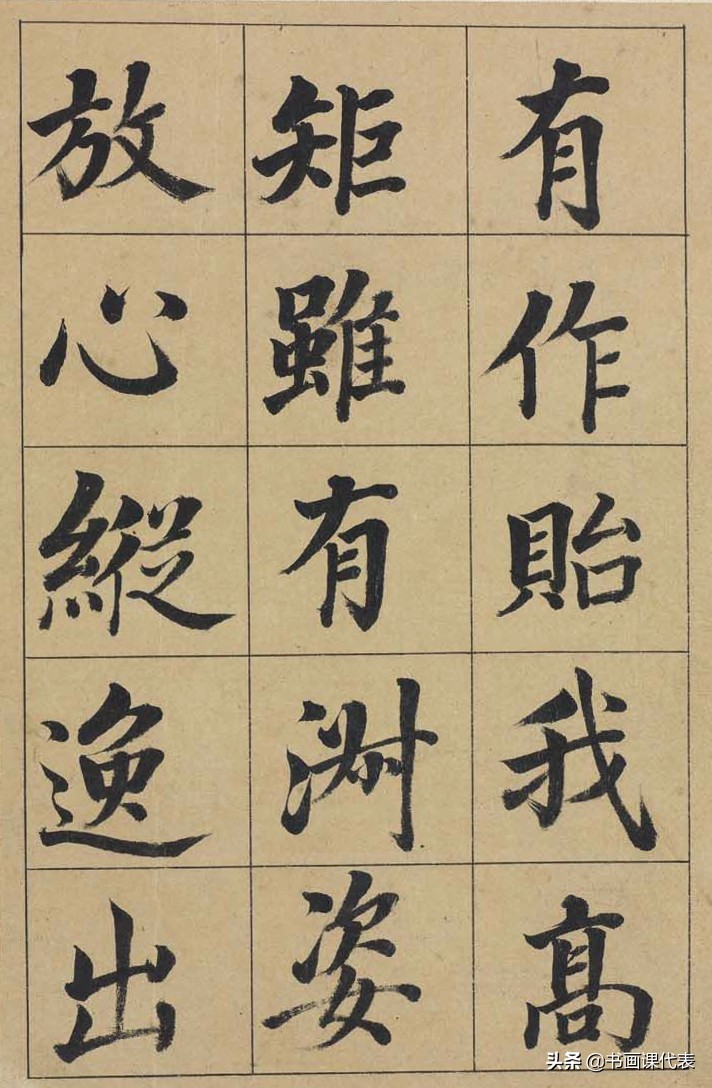 有作貽我高
矩雖有淵姿
放心縱逸出
头条 @书画课代表